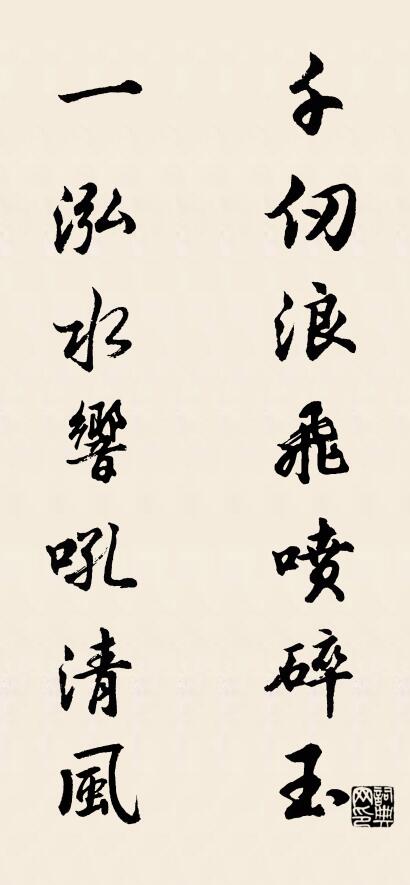 千仞浪飛噴碎玉
一泓水響吼清風
詞典網印